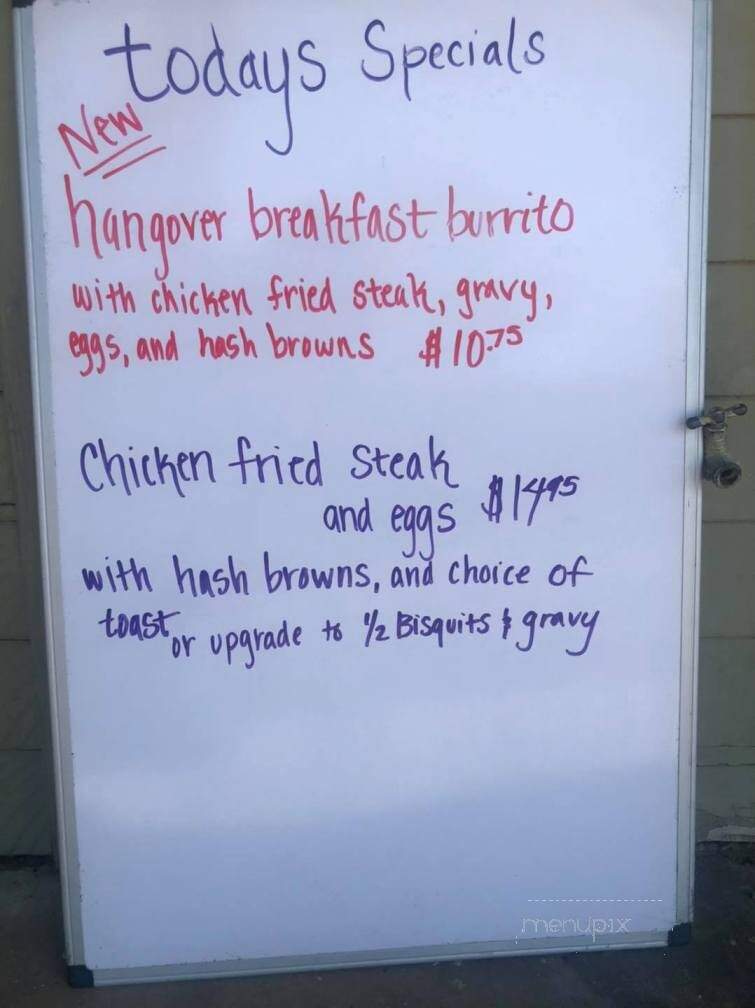 todays Specials
New
hangover breakfast burrito
with chicken fried steak, gravy,
eggs, and hash browns $10.75
Chicken fried steak
and eggs $14.95
with hash browns, and choice of
toast or upgrade to 1/2 Bisquits & gravy
menupix